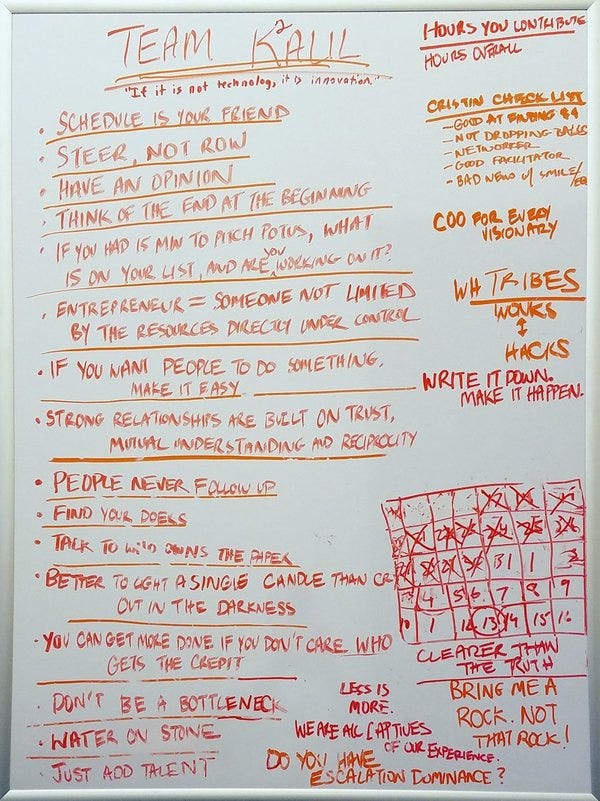 TEAM K²ALIL
"If it is not technology, it is innovation."
• SCHEDULE IS YOUR FRIEND
• STEER, NOT ROW
• HAVE AN OPINION
• THINK OF THE END AT THE BEGINNING
• IF YOU HAD 15 MIN TO PITCH POTUS, WHAT
IS ON YOUR LIST, AND ARE YOU WORKING ON IT?
• ENTREPRENEUR = SOMEONE NOT LIMITED
BY THE RESOURCES DIRECTLY UNDER CONTROL
• IF YOU WANT PEOPLE TO DO SOMETHING,
MAKE IT EASY
• STRONG RELATIONSHIPS ARE BUILT ON TRUST,
MUTUAL UNDERSTANDING AND RECIPROCITY
• PEOPLE NEVER FOLLOW UP
• FIND YOUR DOERS
• TALK TO WHO OWNS THE PAPER
• BETTER TO LIGHT A SINGLE CANDLE THAN CR
OUT IN THE DARKNESS
• YOU CAN GET MORE DONE IF YOU DON'T CARE WHO
GETS THE CREDIT
• DON'T BE A BOTTLENECK
• WATER ON STONE
• JUST ADD TALENT
HOURS YOU CONTRIBUTE
HOURS OVERALL
CRISTIN CHECK LIST
- GOOD AT FINDING $$
- NOT DROPPING BALLS
- NETWORKER
- GOOD FACILITATOR
- BAD NEWS W/ SMILE/EQ
COO FOR EVERY
VISIONARY
WH TRIBES
WONKS
↕
HACKS
WRITE IT DOWN.
MAKE IT HAPPEN.
31 1
4 5 6 7 8 9
10 1 12 13 14 15 16
CLEARER THAN
THE TRUTH
BRING ME A
ROCK. NOT
THAT ROCK!
LESS IS
MORE.
WE ARE ALL CAPTIVES
OF OUR EXPERIENCE.
DO YOU HAVE
ESCALATION DOMINANCE?